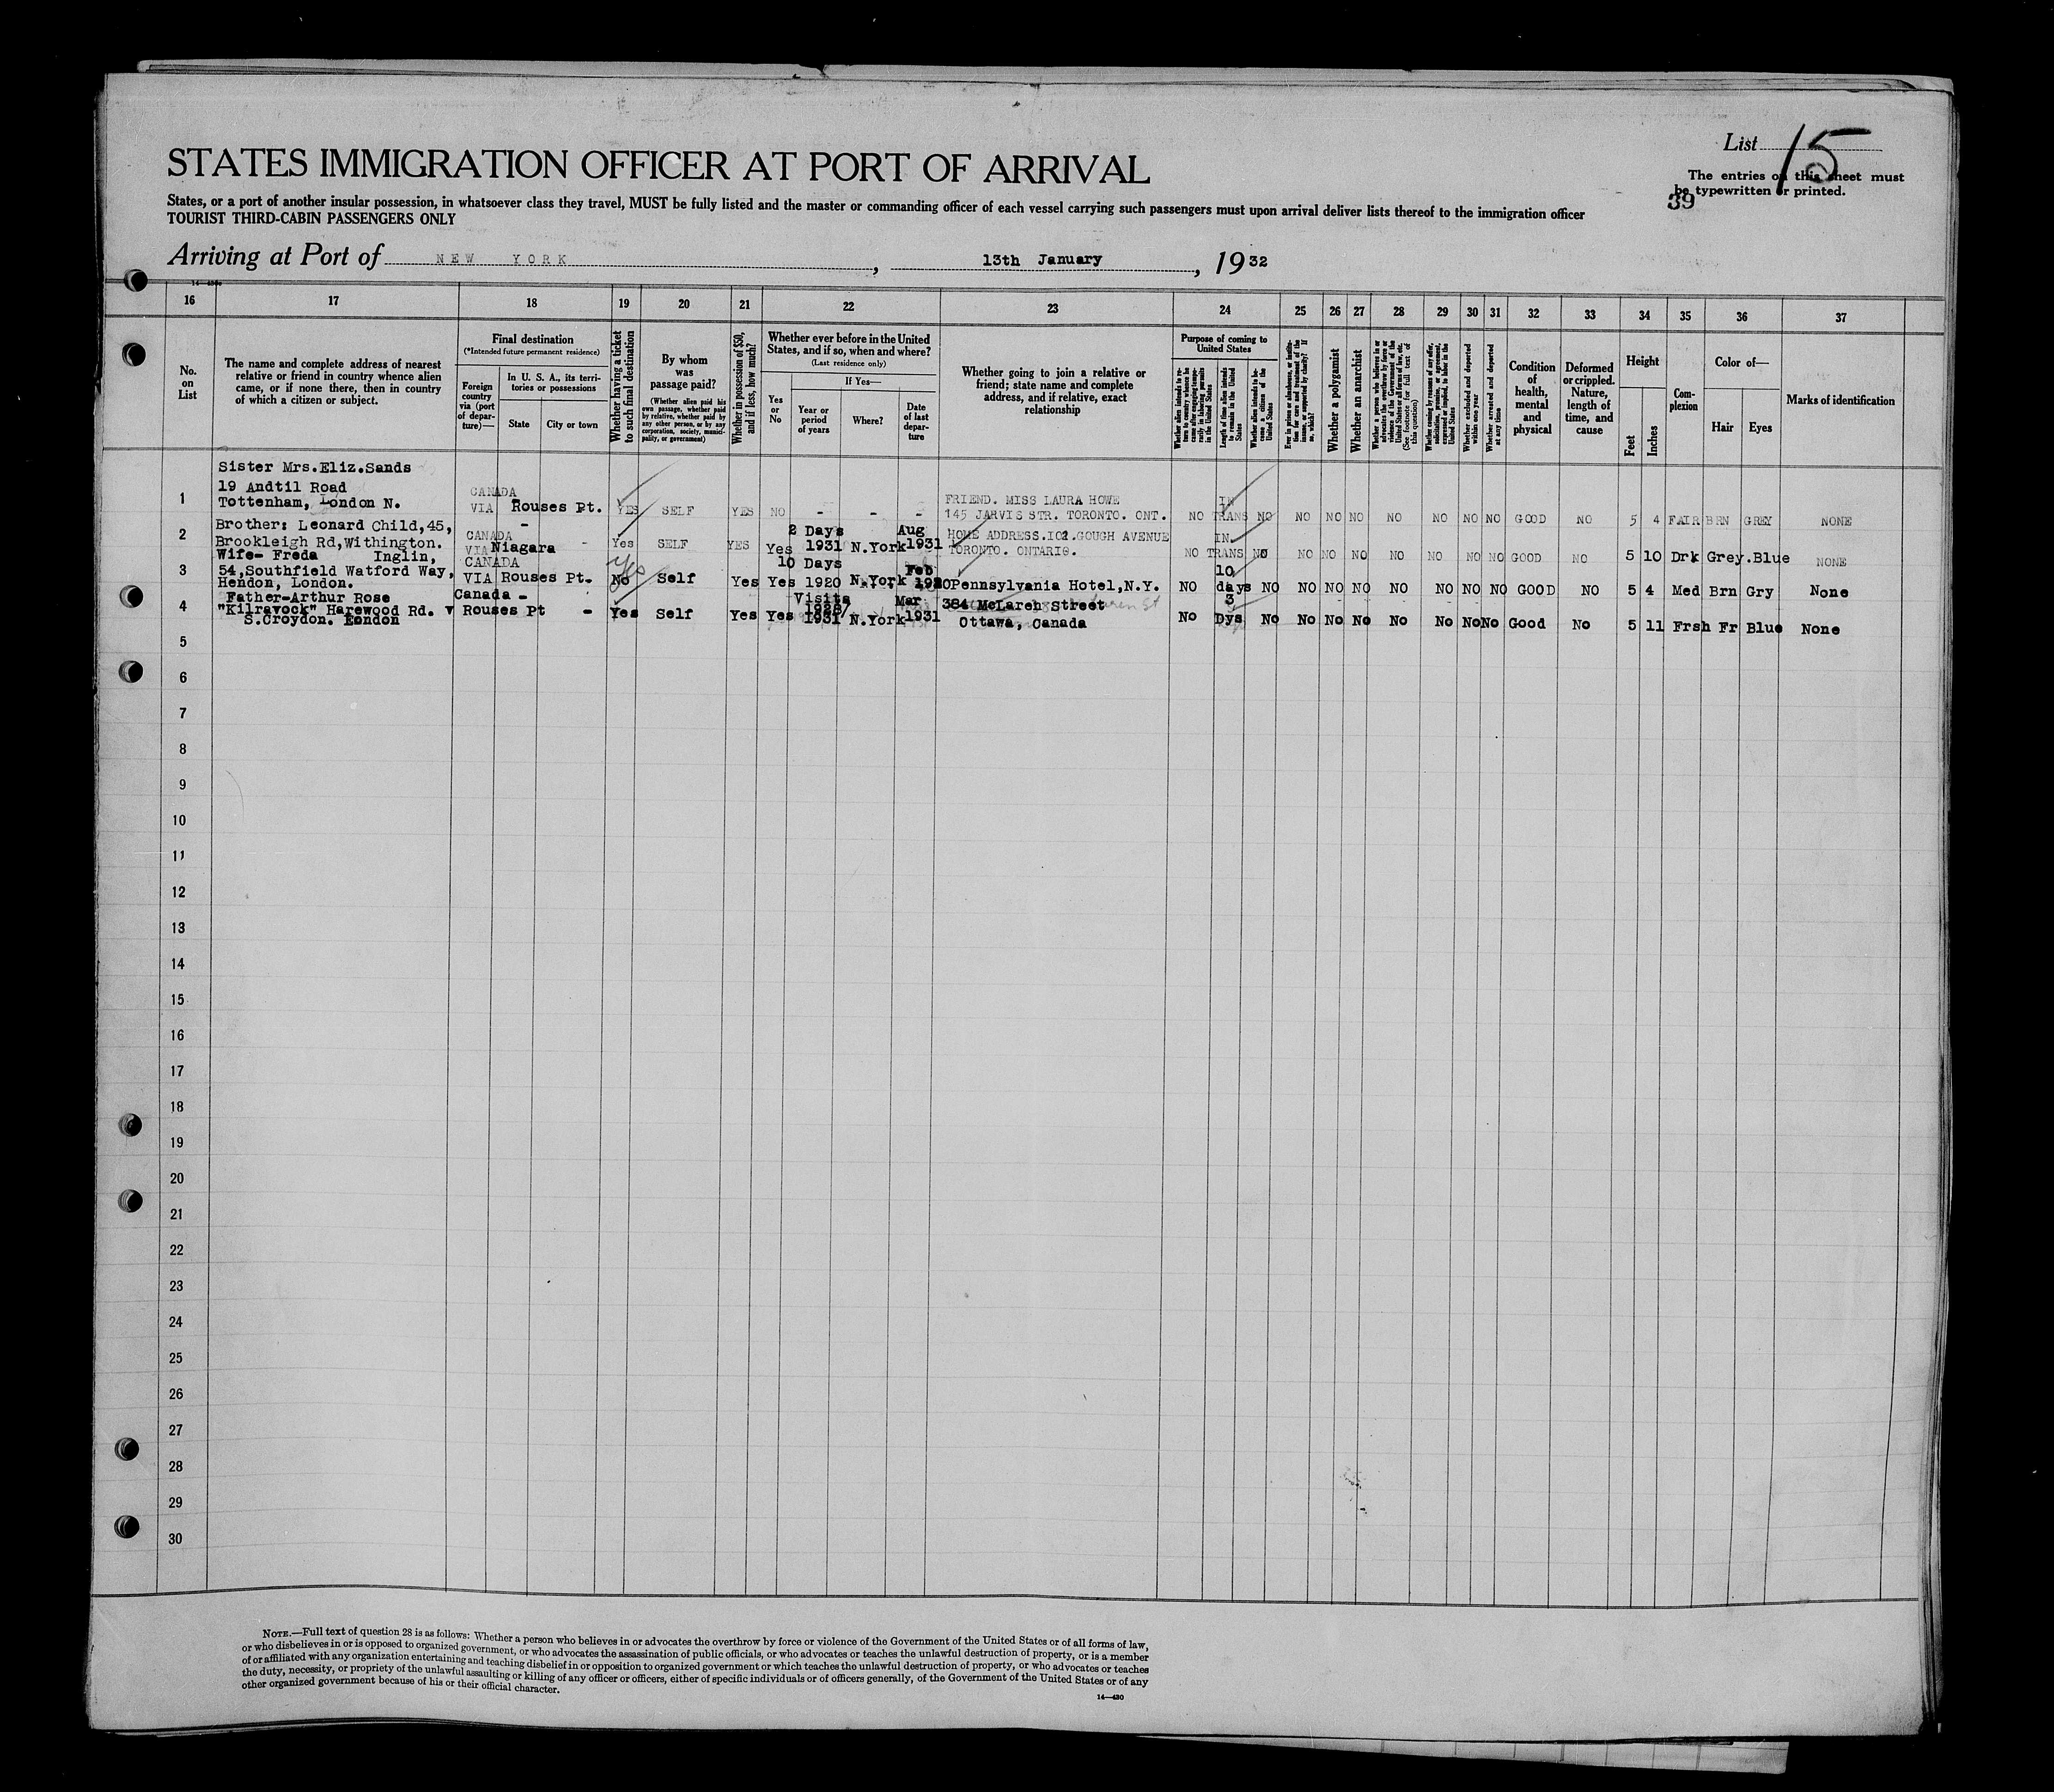 List 15
STATES IMMIGRATION OFFICER AT PORT OF ARRIVAL
The entries on this sheet must
be typewritten or printed.
39
States, or a port of another insular possession, in whatsoever class they travel, MUST be fully listed and the master or commanding officer of each vessel carrying such passengers must upon arrival deliver lists thereof to the immigration officer
TOURIST THIRD-CABIN PASSENGERS ONLY
Arriving at Port of NEW YORK, 13th January, 1932
16 17 18 19 20 21 22 23 24 25 26 27 28 29 30 31 32 33 34 35 36 37
No. on List
The name and complete address of nearest
relative or friend in country whence alien
came, or if none there, then in country
of which a citizen or subject.
Final destination
(*Intended future permanent residence)
Foreign country via (port of departure)—
In U. S. A., its territories or possessions
State
City or town
Whether having a ticket to such final destination
By whom was passage paid?
(Whether alien paid his own passage, whether paid by relative, whether paid by any other person, or by any corporation, society, municipality, or government)
Whether in possession of $50, and if less, how much?
Whether ever before in the United
States, and if so, when and where?
(Last residence only)
Yes or No
If Yes—
Year or period of years
Where?
Date of last departure
Whether going to join a relative or
friend; state name and complete
address, and if relative, exact
relationship
Purpose of coming to
United States
Whether alien intends to return to country whence he came after engaging temporarily in laboring pursuits in the United States
Length of time alien intends to remain in the United States
Whether alien intends to become a citizen of the United States
Ever in prison or almshouse, or institution for care and treatment of the insane, or supported by charity? If so, which?
Whether a polygamist
Whether an anarchist
Whether a person who believes in or advocates the overthrow by force or violence of the Government of the United States or all forms of law, etc. (See footnote for full text of this question)
Whether coming by reason of any offer, solicitation, promise, or agreement, expressed or implied, to labor in the United States
Whether excluded and deported within one year
Whether arrested and deported at any time
Condition of health, mental and physical
Deformed or crippled. Nature, length of time, and cause
Height
Feet
Inches
Complexion
Color of—
Hair
Eyes
Marks of identification
Sister Mrs.Eliz.Sands
19 Andtil Road
Tottenham, London N.
1 CANADA VIA Rouses Pt. YES SELF YES NO - - - FRIEND. MISS LAURA HOWE
145 JARVIS STR. TORONTO. ONT. NO IN TRANS NO NO NO NO NO NO NO NO GOOD NO 5 4 FAIR BRN GREY NONE
Brother: Leonard Child,45,
Brookleigh Rd,Withington.
2 CANADA VIA Niagara - Yes SELF YES Yes 2 Days 1931 N.York Aug 1931 HOME ADDRESS.102.GOUGH AVENUE
TORONTO. ONTARIO. NO IN TRANS NO NO NO NO NO NO NO NO GOOD NO 5 10 Drk Grey.Blue NONE
Wife- Freda Inglin,
54,Southfield Watford Way,
Hendon, London.
3 CANADA VIA Rouses Pt. No Yes Self Yes Yes 10 Days 1920 N.York Feb 1920 Pennsylvania Hotel,N.Y. NO 10 days NO NO NO NO NO NO NO NO GOOD NO 5 4 Med Brn Gry None
Father-Arthur Rose
"Kilravock" Harewood Rd.
S.Croydon. London
4 Canada - v Rouses Pt - Yes Self Yes Yes Visits 1928/ 1931 N.York Mar 1931 384 McLaren Street
Ottawa, Canada No 3 Dys No No No No No No No No Good No 5 11 Frsh Fr Blue None
5
6
7
8
9
10
11
12
13
14
15
16
17
18
19
20
21
22
23
24
25
26
27
28
29
30
NOTE.—Full text of question 28 is as follows: Whether a person who believes in or advocates the overthrow by force or violence of the Government of the United States or of all forms of law,
or who disbelieves in or is opposed to organized government, or who advocates the assassination of public officials, or who advocates or teaches the unlawful destruction of property, or is a member
of or affiliated with any organization entertaining and teaching disbelief in or opposition to organized government or which teaches the unlawful destruction of property, or who advocates or teaches
the duty, necessity, or propriety of the unlawful assaulting or killing of any officer or officers, either of specific individuals or of officers generally, of the Government of the United States or of any
other organized government because of his or their official character.
14—430